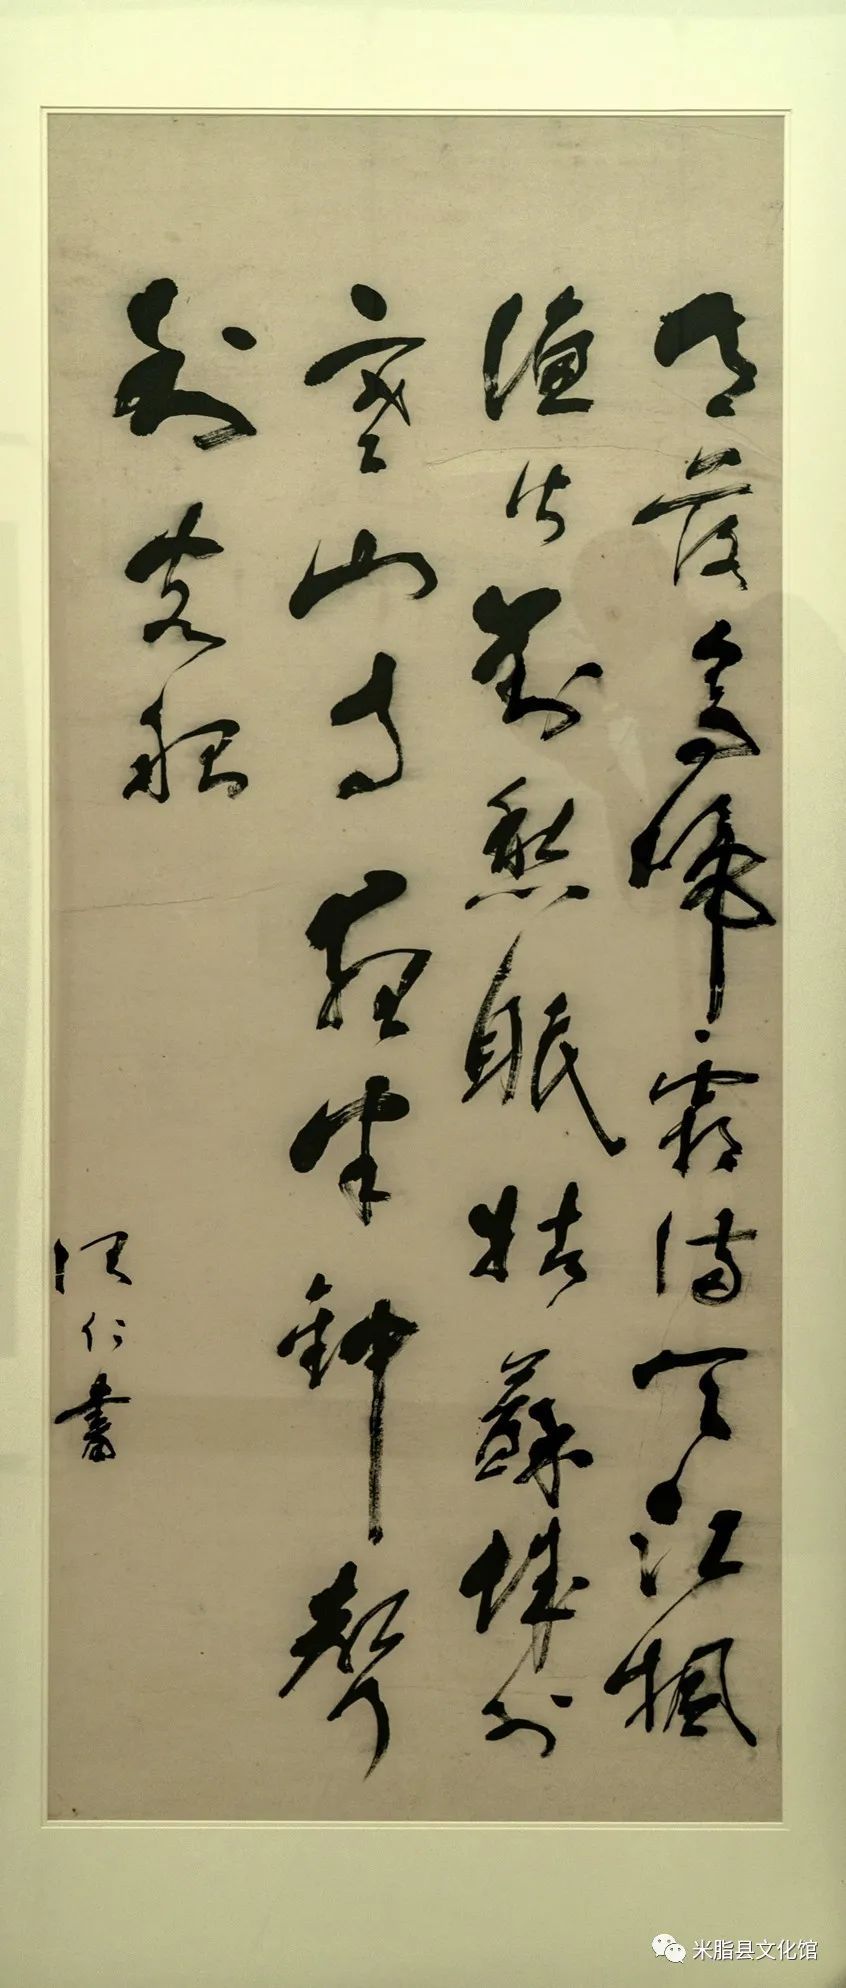 月落烏啼霜滿天江楓
漁火對愁眠姑蘇城外
寒山寺夜半鈡聲
到客船
仁書
米脂县文化馆